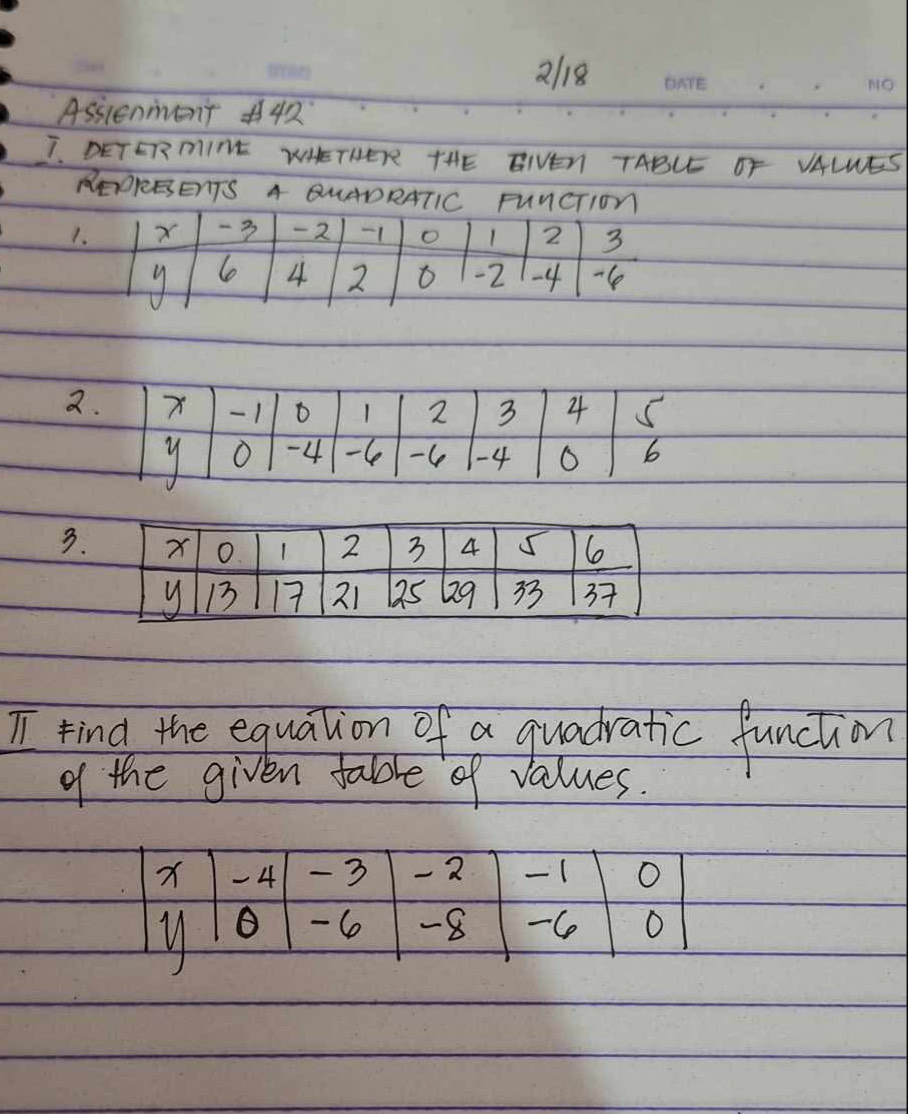 2/18 DATE NO
Assignment #42
I. DETERMINE WHETHER THE GIVEN TABLE OF VALUES
REPRESENTS A QUADRATIC FUNCTION
1. x -3 -2 -1 0 1 2 3
y 6 4 2 0 -2 -4 -6
2. x -1 0 1 2 3 4 5
y 0 -4 -6 -6 -4 0 6
3. x 0 1 2 3 4 5 6
y 13 17 21 25 29 33 37
II Find the equation of a quadratic function
of the given table of values.
x -4 -3 -2 -1 0
y 0 -6 -8 -6 0